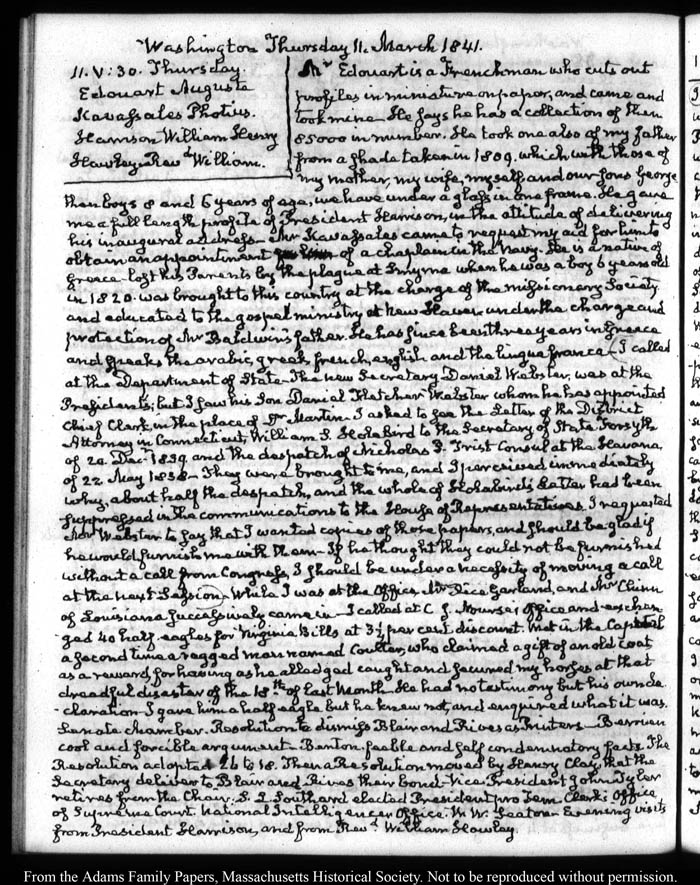 Washington Thursday 11. March 1841.
11. V:30. Thursday.
Edouart Auguste
Kavasales Photius.
Harrison William Henry
Hawley Revd William.
Mr Edouart is a Frenchman who cuts out
profiles in miniature on paper, and came and
took mine. He says he has a collection of them
85000 in number. He took one also of my father
from a shade taken in 1809. which with those of
my mother, my wife, myself and our sons George
then boys 8 and 6 years of age, we have under a glass in one frame. He gave
me a full length profile of President Harrison, in the attitude of delivering
his inaugural address— Mr Kavasales came to request my aid for him to
obtain an appointment of a chaplain in the Navy. He is a native of
Greece— lost his Parents by the plague at Smyrna when he was a boy 6 years old
in 1820. was brought to this country at the charge of the missionary Society
and educated to the gospel ministry at New Haven under the charge and
protection of Mr Baldwin's father. He has since been three years in Greece
and speaks the arabic, greek, french, english and the lingua franca— I called
at the Department of State— The new Secretary Daniel Webster, was at the
President's; but I saw his Son Daniel Fletcher Webster whom he has appointed
Chief Clerk, in the place of Dr Martin. I asked to see the Letter of the District
Attorney in Connecticut, William S. Holabird to the Secretary of State Forsyth
of 20. Decr 1839. and the despatch of Nicholas P. Trist Consul at the Havana
of 22 May 1838— They were brought to me, and I perceived immediately
why, about half the despatch, and the whole of Holabird's Letter had been
suppressed in the communications to the House of Representatives. I requested
Mr Webster to say that I wanted copies of those papers, and should be glad if
he would furnish me with them— If he thought they could not be furnished
without a call from Congress, I should be under a necessity of moving a call
at the next Session. While I was at the Office, Mr Rice Garland, and Mr Chinn
of Louisiana successively came in— I called at C. J. Nourse's Office and exchan-
ged 40 half-eagles for Virginia Bills at 3½ per cent. discount. Met in the Capitol
a second time a ragged man named Coulter, who claimed a gift of an old coat
as a reward, for having as he alledged caught and secured my horses at that
dreadful disaster of the 18th of last Month— He had no testimony but his own de-
claration— I gave him a half-eagle but he knew not, and enquired what it was.
Senate chamber. Resolution to dismiss Blair and Rives as Printers— Berrien
cool and forcible argument— Benton feeble and self condemnatory facts. The
Resolution adopted 26 to 18. Then a Resolution moved by Henry Clay, that the
Secretary deliver to Blair and Rives their bond— Vice-President John Tyler
retires from the Chair. S. L. Southard elected President pro Tem. Clerk's Office
of Supreme Court. National Intelligencer Office. W. W. Seaton— Evening visits
from President Harrison, and from Revd William Hawley.
From the Adams Family Papers, Massachusetts Historical Society. Not to be reproduced without permission.